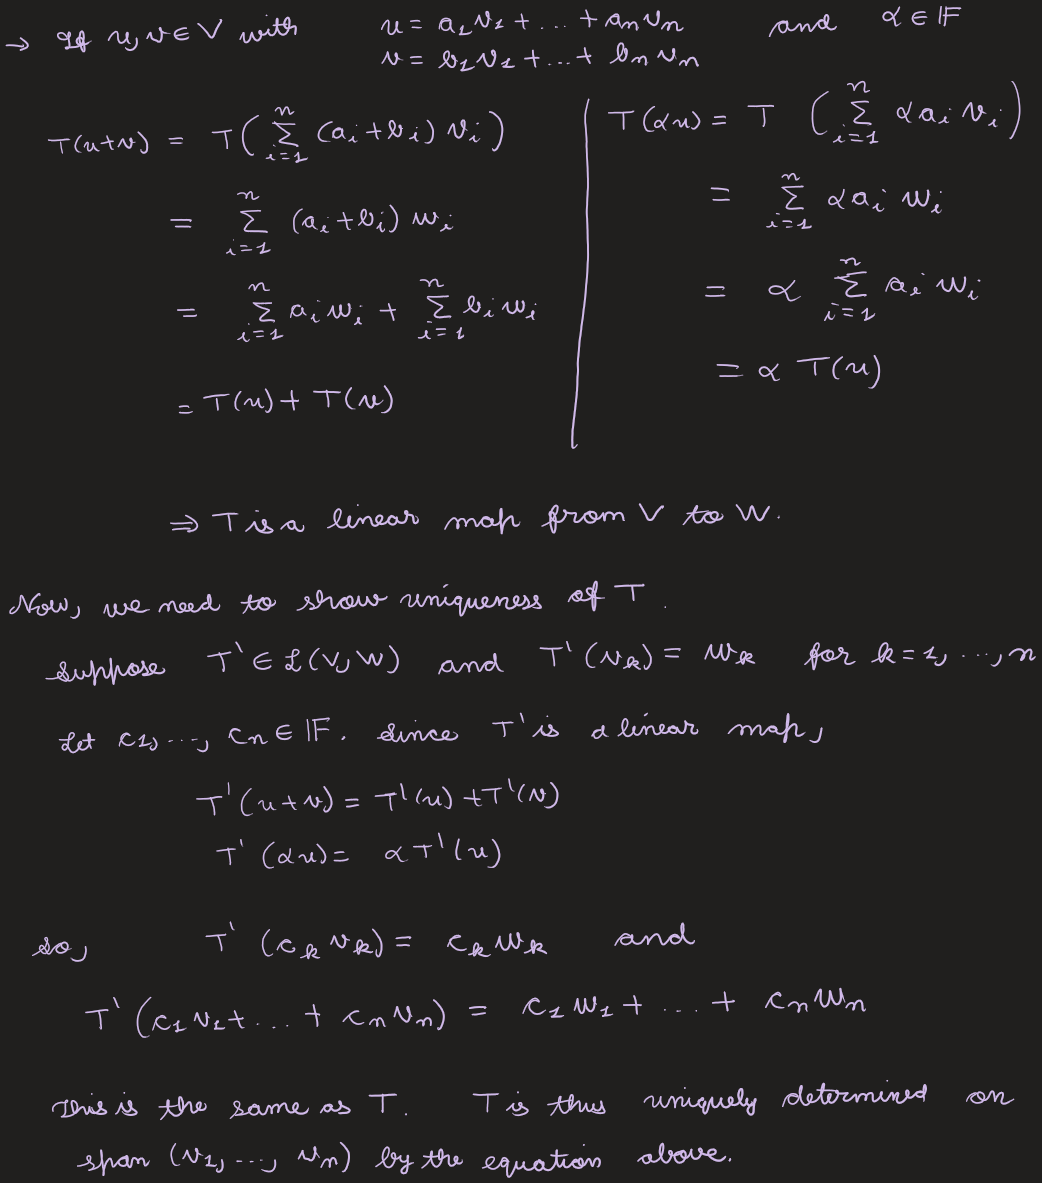 → If u, v ∈ V with u = a₁v₁ + ... + aₙvₙ and α ∈ 𝔽
v = b₁v₁ + ... + bₙvₙ
T(u+v) = T(∑ᵢ₌₁ⁿ (aᵢ+bᵢ) vᵢ)
= ∑ᵢ₌₁ⁿ (aᵢ+bᵢ) wᵢ
= ∑ᵢ₌₁ⁿ aᵢwᵢ + ∑ᵢ₌₁ⁿ bᵢwᵢ
= T(u) + T(v)
T(αu) = T (∑ᵢ₌₁ⁿ αaᵢ vᵢ)
= ∑ᵢ₌₁ⁿ αaᵢ wᵢ
= α ∑ᵢ₌₁ⁿ aᵢ wᵢ
= α T(u)
⇒ T is a linear map from V to W.
Now, we need to show uniqueness of T.
Suppose T' ∈ ℒ(V, W) and T'(vₖ) = wₖ for k = 1, ..., n
Let c₁, ..., cₙ ∈ 𝔽. Since T' is a linear map,
T'(u+v) = T'(u) + T'(v)
T'(αu) = αT'(u)
so, T'(cₖvₖ) = cₖwₖ and
T'(c₁v₁ + ... + cₙvₙ) = c₁w₁ + .... + cₙwₙ
This is the same as T. T is thus uniquely determined on
span (v₁, ..., vₙ) by the equation above.